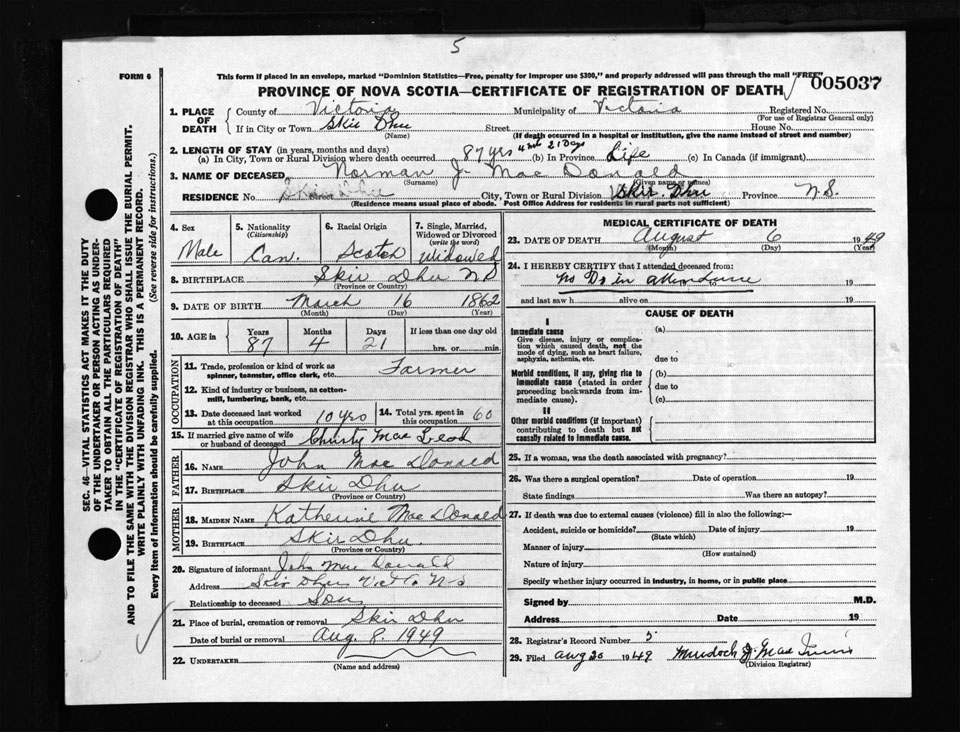 5
FORM 6
This form if placed in an envelope, marked "Dominion Statistics—Free, penalty for improper use $300," and properly addressed will pass through the mail "FREE"
005037
PROVINCE OF NOVA SCOTIA—CERTIFICATE OF REGISTRATION OF DEATH
1. PLACE OF DEATH County of Victoria Municipality of Victoria Registered No.
(For use of Registrar General only)
If in City or Town Skir Dhu Street House No.
(Name) (If death occurred in a hospital or institution, give the name instead of street and number)
2. LENGTH OF STAY (in years, months and days)
(a) In City, Town or Rural Division where death occurred 87 yrs 4 mos 21 Days (b) In Province Life (c) In Canada (if immigrant)
3. NAME OF DECEASED Norman J. MacDonald
(Surname) (Given name or names)
RESIDENCE No. Skir Dhu Street City, Town or Rural Division Skir Dhu Province N.S.
(Residence means usual place of abode. Post Office Address for residents in rural parts not sufficient)
4. Sex Male
5. Nationality (Citizenship) Can.
6. Racial Origin Scotch
7. Single, Married, Widowed or Divorced (write the word) Widowed
8. BIRTHPLACE Skir Dhu N S
(Province or Country)
9. DATE OF BIRTH March 16 1862
(Month) (Day) (Year)
10. AGE in Years 87 Months 4 Days 21 If less than one day old hrs. or min.
OCCUPATION
11. Trade, profession or kind of work as spinner, teamster, office clerk, etc. Farmer
12. Kind of industry or business, as cotton-mill, lumbering, bank, etc.
13. Date deceased last worked at this occupation 10 yrs 14. Total yrs. spent in this occupation 60
15. If married give name of wife or husband of deceased Christy MacLeod
FATHER
16. NAME John MacDonald
17. BIRTHPLACE Skir Dhu
(Province or Country)
MOTHER
18. MAIDEN NAME Katherine MacDonald
19. BIRTHPLACE Skir Dhu.
(Province or Country)
20. Signature of informant John MacDonald
Address Skir Dhu Vic Co N-S
Relationship to deceased Son
21. Place of burial, cremation or removal Skir Dhu
Date of burial or removal Aug. 8. 1949
22. UNDERTAKER
(Name and address)
MEDICAL CERTIFICATE OF DEATH
23. DATE OF DEATH August 6 1949
(Month) (Day) (Year)
24. I HEREBY CERTIFY that I attended deceased from:
No Dr in attendance to 19
and last saw h alive on 19
CAUSE OF DEATH
I
Immediate cause (a)
Give disease, injury or complication which caused death, not the mode of dying, such as heart failure, asphyxia, asthenia, etc. due to
Morbid conditions, if any, giving rise to immediate cause (stated in order proceeding backwards from immediate cause). (b) due to (c)
II
Other morbid conditions (if important) contributing to death but not causally related to immediate cause.
25. If a woman, was the death associated with pregnancy?
26. Was there a surgical operation? Date of operation 19
State findings Was there an autopsy?
27. If death was due to external causes (violence) fill in also the following:—
Accident, suicide or homicide? Date of injury 19
(State which)
Manner of injury
(How sustained)
Nature of injury
Specify whether injury occurred in industry, in home, or in public place
Signed by M.D.
Address Date 19
28. Registrar's Record Number 5
29. Filed Aug 20 1949 Murdock J. Mac
(Division Registrar)
SEC. 46—VITAL STATISTICS ACT MAKES IT THE DUTY
OF THE UNDERTAKER OR PERSON ACTING AS UNDER-
TAKER TO OBTAIN ALL THE PARTICULARS REQUIRED
IN THE "CERTIFICATE OF REGISTRATION OF DEATH"
AND TO FILE THE SAME WITH THE DIVISION REGISTRAR WHO SHALL ISSUE THE BURIAL PERMIT.
WRITE PLAINLY WITH UNFADING INK. THIS IS A PERMANENT RECORD.
Every item of information should be carefully supplied. (See reverse side for instructions.)